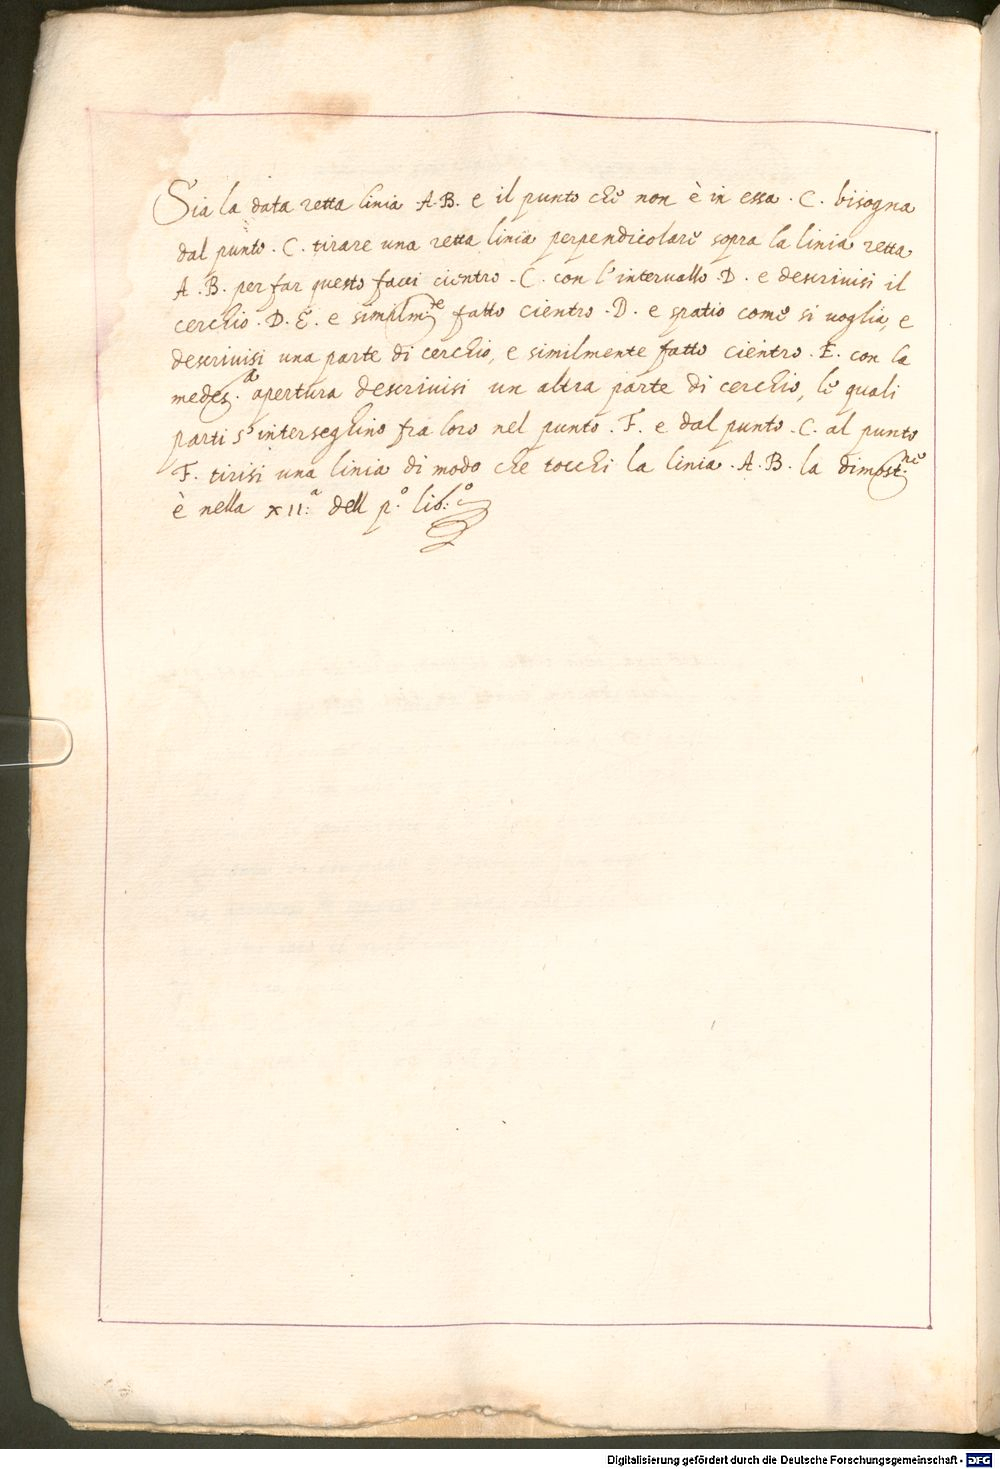 Sia la data retta linia .A.B. e il punto che non è in essa .C. bisogna
dal punto .C. tirare una retta linia perpendicolare sopra la linia retta
A.B. per far questo facci cientro .C. con l'interuallo .D. e descriuisi il
cerchio .D.E. e similm.te fatto cientro .D. e spatio come si uoglia, e
descriuisi una parte di cerchio, e similmente fatto cientro .E. con la
medes.a apertura descriuisi un altra parte di cerchio, le quali
parti s'interseghino fra loro nel punto .F. e dal punto .C. al punto
F. tirisi una linia di modo che tocchi la linia .A.B. la dimost.ne
è nella XII.a dell p.o lib.o
Digitalisierung gefördert durch die Deutsche Forschungsgemeinschaft - DFG